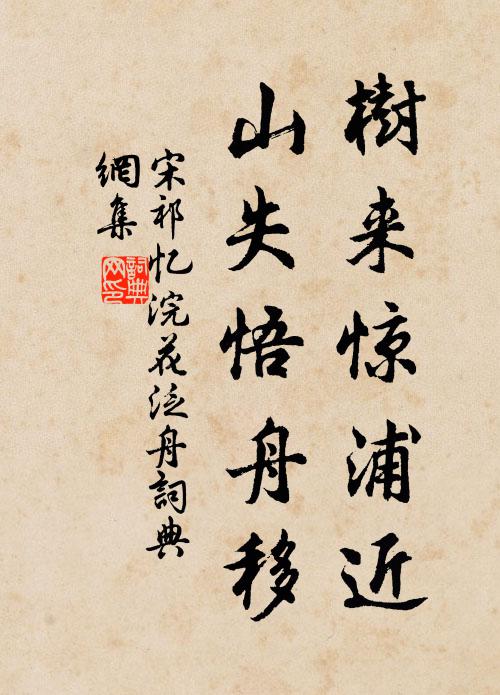 樹来惊浦近
山失悟舟移
宋祁忆浣花泛舟詞典
網集
詞典
网印